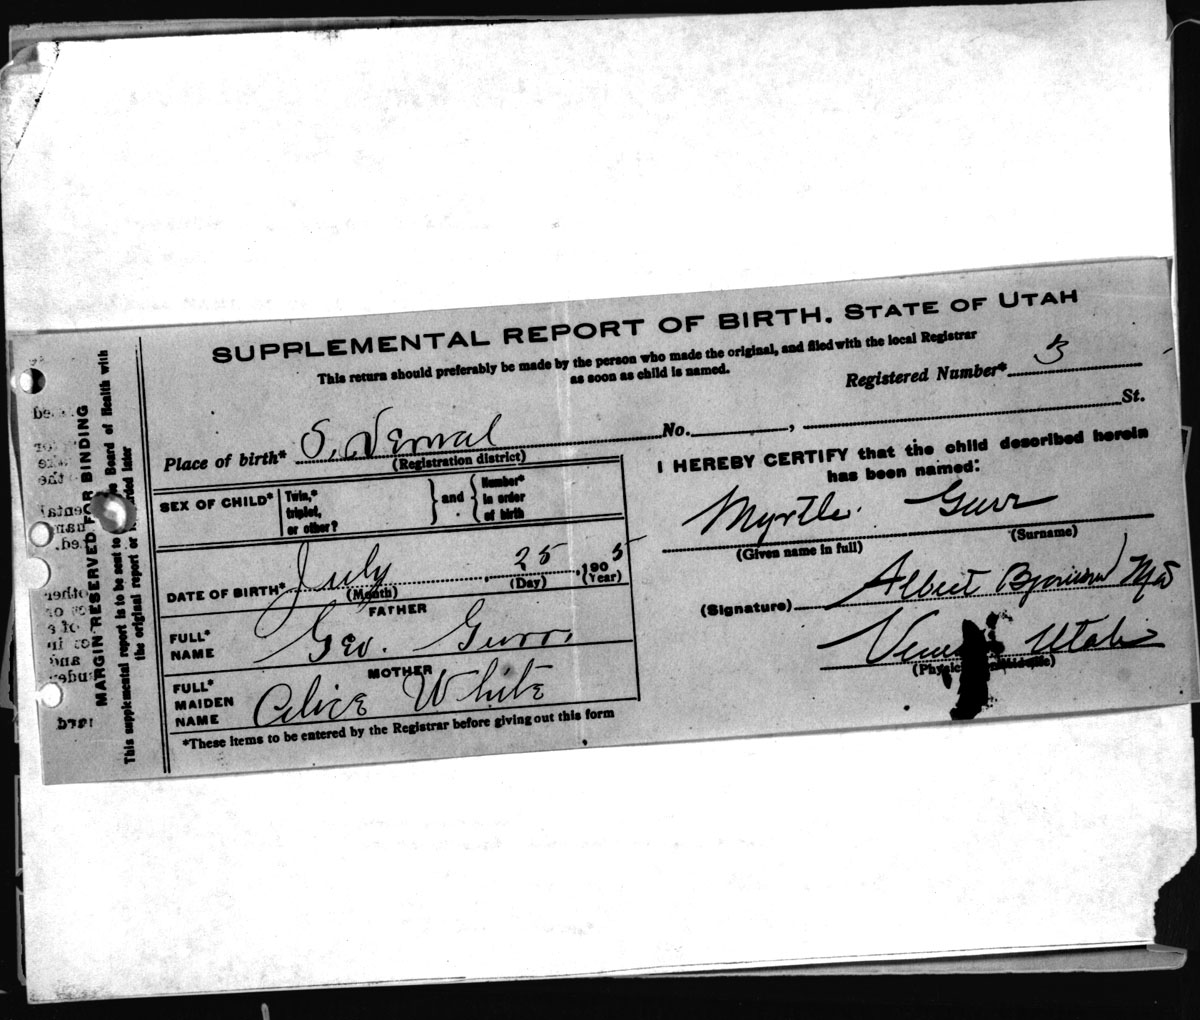 SUPPLEMENTAL REPORT OF BIRTH. STATE OF UTAH
This return should preferably be made by the person who made the original, and filed with the local Registrar
as soon as child is named.
Registered Number* 3
Place of birth* S. Vernal No. , St.
(Registration district)
SEX OF CHILD* Twin,* triplet, or other? } and { Number* in order of birth
DATE OF BIRTH* July , 25 , 1905
(Month) (Day) (Year)
FATHER
FULL* NAME Geo. Gurr
MOTHER
FULL* MAIDEN NAME Alice White
*These items to be entered by the Registrar before giving out this form
I HEREBY CERTIFY that the child described herein
has been named:
Myrtle. Gurr
(Given name in full) (Surname)
(Signature) Albert
Utah
MARGIN RESERVED FOR BINDING
This supplemental report is to be sent to Board of Health with
the original report or later